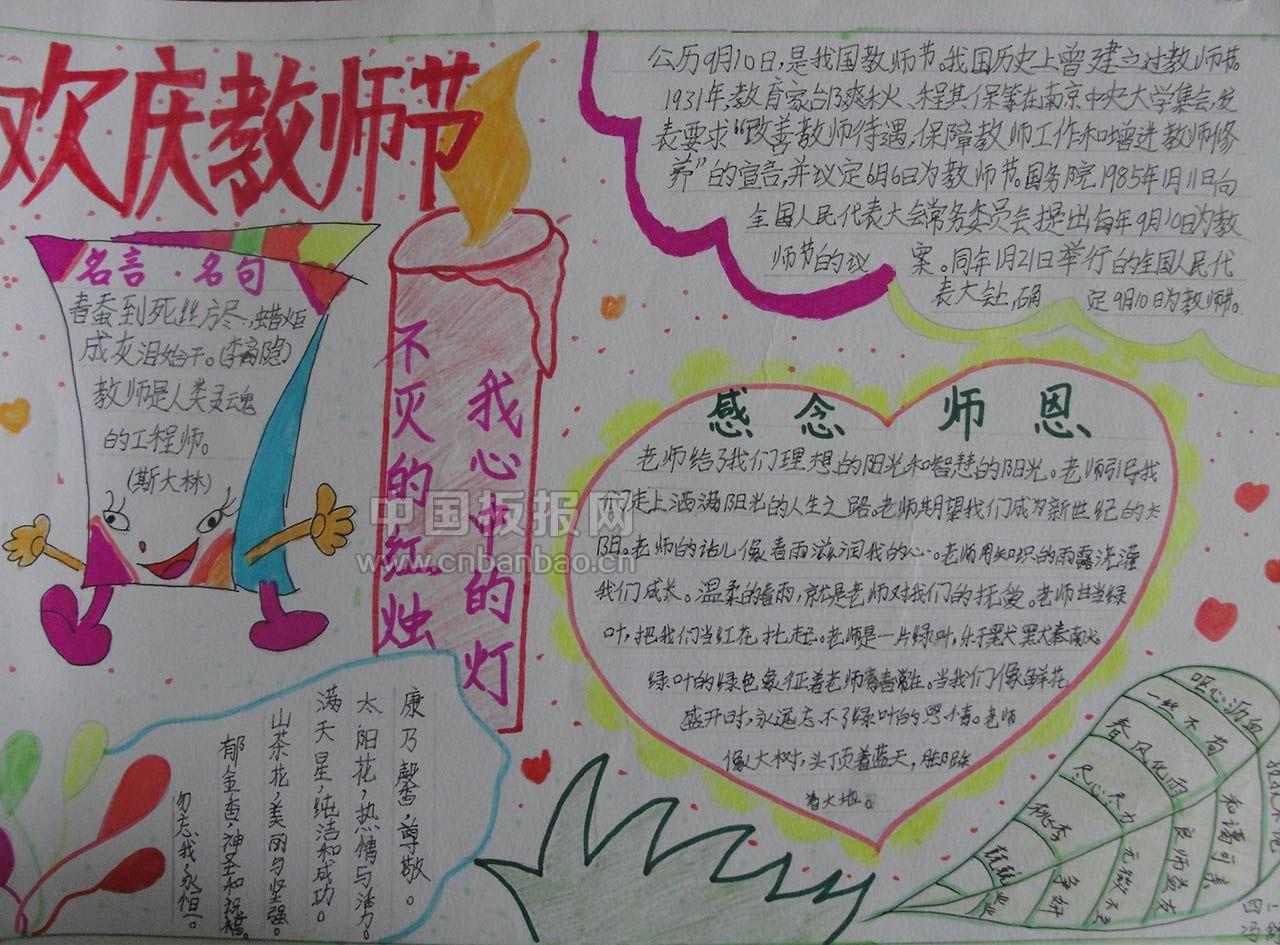 欢庆教师节
名言·名句
春蚕到死丝方尽,蜡炬
成灰泪始干。(李商隐)
教师是人类灵魂
的工程师。
(斯大林)
我心中的灯
不灭的红烛
公历9月10日,是我国教师节。我国历史上曾建立过教师节。
1931年,教育家邰爽秋、程其保等在南京中央大学集会,发
表要求“改善教师待遇,保障教师工作和增进教师修
养”的宣言,并议定6月6日为教师节。国务院1985年1月11日向
全国人民代表大会常务委员会提出每年9月10日为教
师节的议案。同年1月21日举行的全国人民代
表大会,确定9月10日为教师节。
感念师恩
老师给了我们理想的阳光和智慧的阳光。老师引导我
们走上洒满阳光的人生之路。老师期望我们成为新世纪的太
阳。老师的话儿像春雨滋润我的心。老师用知识的雨露浇灌
我们成长。温柔的春雨,就是老师对我们的抚爱。老师甘当绿
叶,把我们当红花扶起。老师是一片绿叶,乐于默默奉献
绿叶的绿色象征着老师青春常在。当我们像鲜花
盛开时,永远忘不了绿叶的恩情。老师
像大树,头顶着蓝天,脚踩
着大地。
康乃馨,尊敬。
太阳花,热情与活力。
满天星,纯洁和成功。
山茶花,美丽与坚强。
郁金香,神圣和祝福。
勿忘我,永恒。
呕心沥血
一丝不苟
春风化雨
尽心尽力
桃李争妍
兢兢业业
无微不至
良师益友
和蔼可亲
四
冯
中国板报网
www.cnbanbao.cn